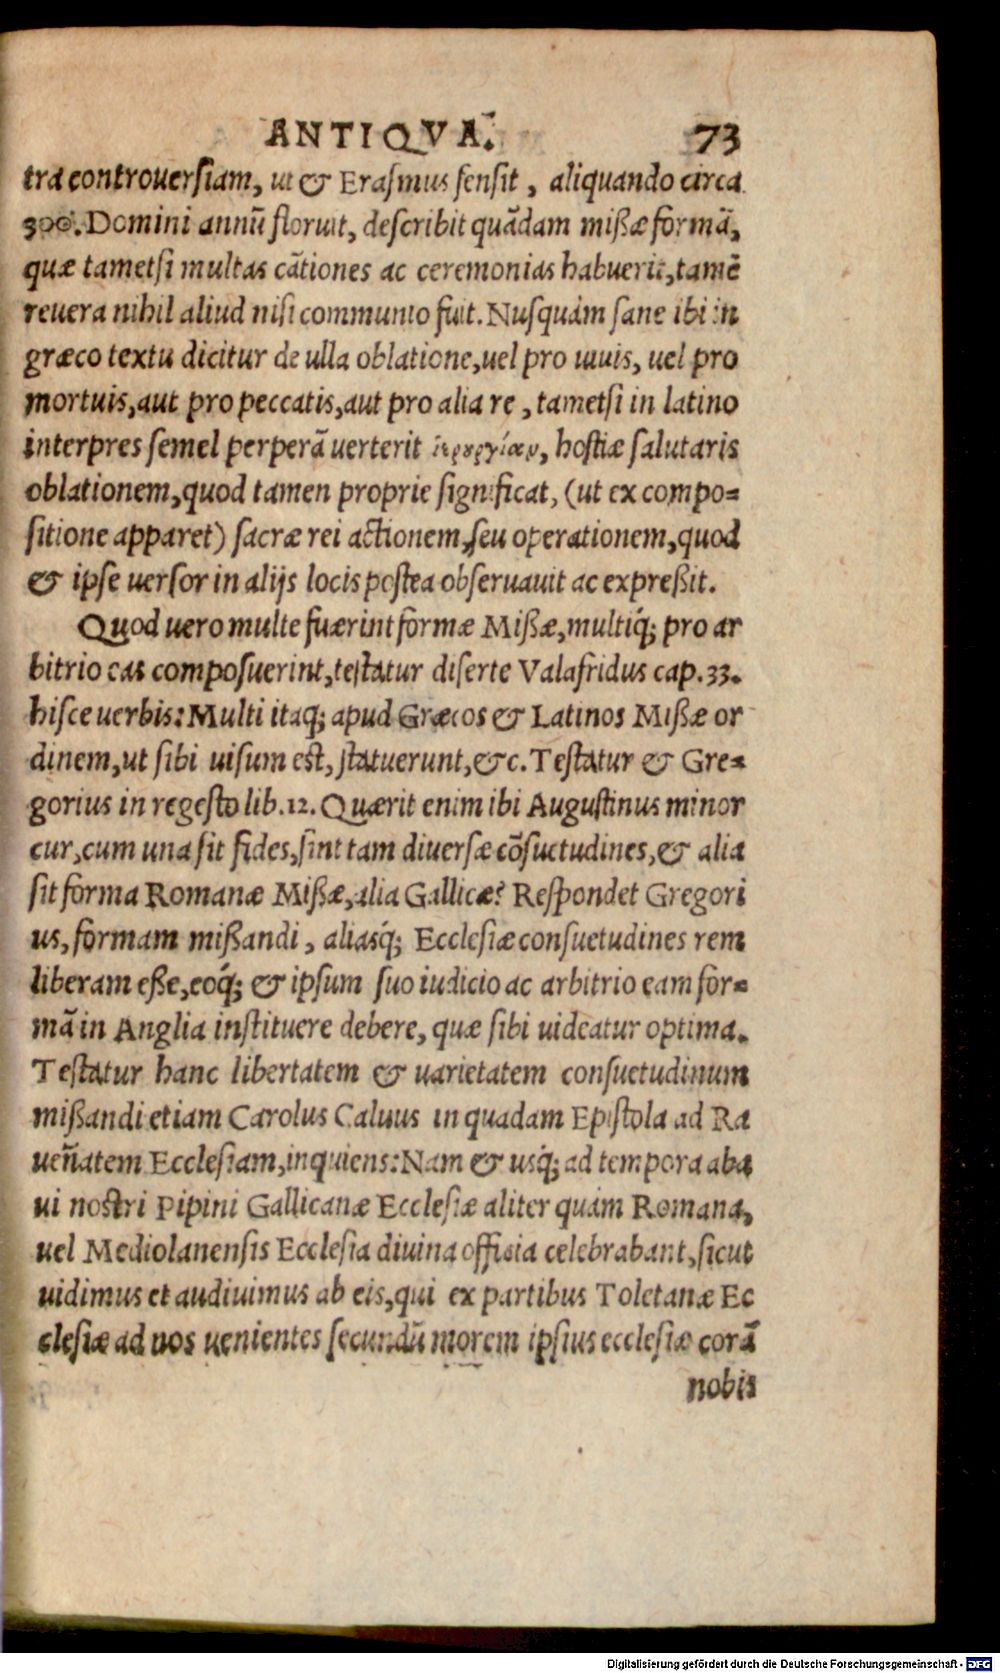 ANTIQVA. 73
tra controuersiam, ut & Erasmus sensit, aliquando circa
300. Domini annū floruit, describit quādam mißæ formā,
quæ tametsi multas cātiones ac ceremonias habuerit, tamē
reuera nihil aliud nisi communio fuit. Nusquàm sane ibi in
græco textu dicitur de ulla oblatione, uel pro uiuis, uel pro
mortuis, aut pro peccatis, aut pro alia re, tametsi in latino
interpres semel perperā uerterit ἱερουργίαν, hostiæ salutaris
oblationem, quod tamen proprie significat, (ut ex compo=
sitione apparet) sacræ rei actionem, seu operationem, quod
& ipse uersor in alijs locis postea obseruauit ac expreßit.
Quod uero multe fuerint formæ Mißæ, multiq́; pro ar
bitrio eas composuerint, testatur diserte Valafridus cap. 33.
hisce uerbis: Multi itaq; apud Græcos & Latinos Mißæ or
dinem, ut sibi uisum est, statuerunt, &c. Testatur & Gre=
gorius in regesto lib. 12. Quærit enim ibi Augustinus minor
cur, cum una sit fides, sint tam diuersæ cōsuetudines, & alia
sit forma Romanæ Mißæ, alia Gallicæ? Respondet Gregori
us, formam mißandi, aliasq́; Ecclesiæ consuetudines rem
liberam eße, eoq́; & ipsum suo iudicio ac arbitrio eam for=
mā in Anglia instituere debere, quæ sibi uideatur optima.
Testatur hanc libertatem & uarietatem consuetudinum
mißandi etiam Carolus Caluus in quadam Epistola ad Ra
ueñatem Ecclesiam, inquiens: Nam & usq́; ad tempora aba
ui nostri Pipini Gallicanæ Ecclesiæ aliter quàm Romana,
uel Mediolanensis Ecclesia diuina officia celebrabant, sicut
uidimus et audiuimus ab eis, qui ex partibus Toletanæ Ec
clesiæ ad nos uenientes secundū morem ipsius ecclesiæ corā
nobis
Digitalisierung gefördert durch die Deutsche Forschungsgemeinschaft - DFG